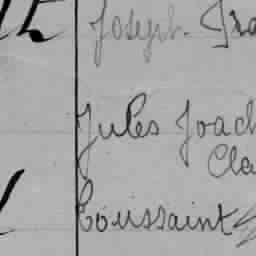 Joseph-Fra
Jules Joach
Cla
Toussaint